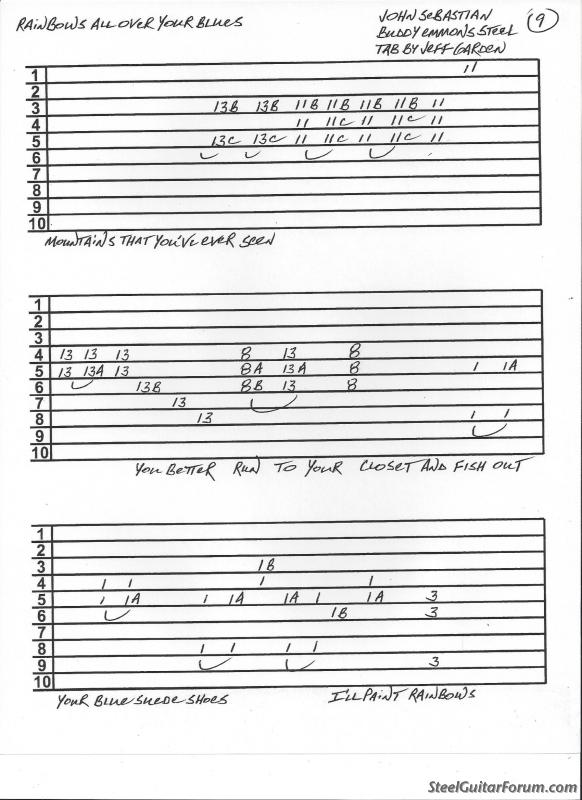 RAINBOWS ALL OVER YOUR BLUES
JOHN SEBASTIAN
BUDDY EMMONS STEEL
TAB BY JEFF GARDEN
9
1 11
2
3 13B 13B 11B 11B 11B 11B 11
4 11 11C 11 11C 11
5 13C 13C 11 11C 11 11C 11
6
7
8
9
10
MOUNTAINS THAT YOU'VE EVER SEEN
1
2
3
4 13 13 13 8 13 8
5 13 13A 13 8A 13A 8 1 1A
6 13B 8B 13 8
7 13
8 13 1 1
9
10
YOU BETTER RUN TO YOUR CLOSET AND FISH OUT
1
2
3 1B
4 1 1 1 1
5 1 1A 1 1A 1A 1 1A 3
6 1B 3
7
8 1 1 1 1
9 3
10
YOUR BLUE SUEDE SHOES I'LL PAINT RAINBOWS
SteelGuitarForum.com